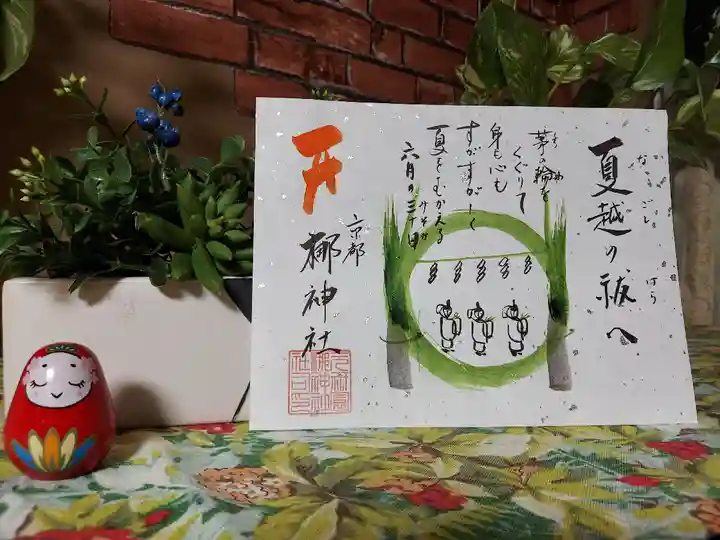 夏越の祓へ
はら
茅の輪を
ち わ
くぐりて
身も心も
すがすがしく
夏をむかえる
六月の三十日
みそか
京都
梛神社